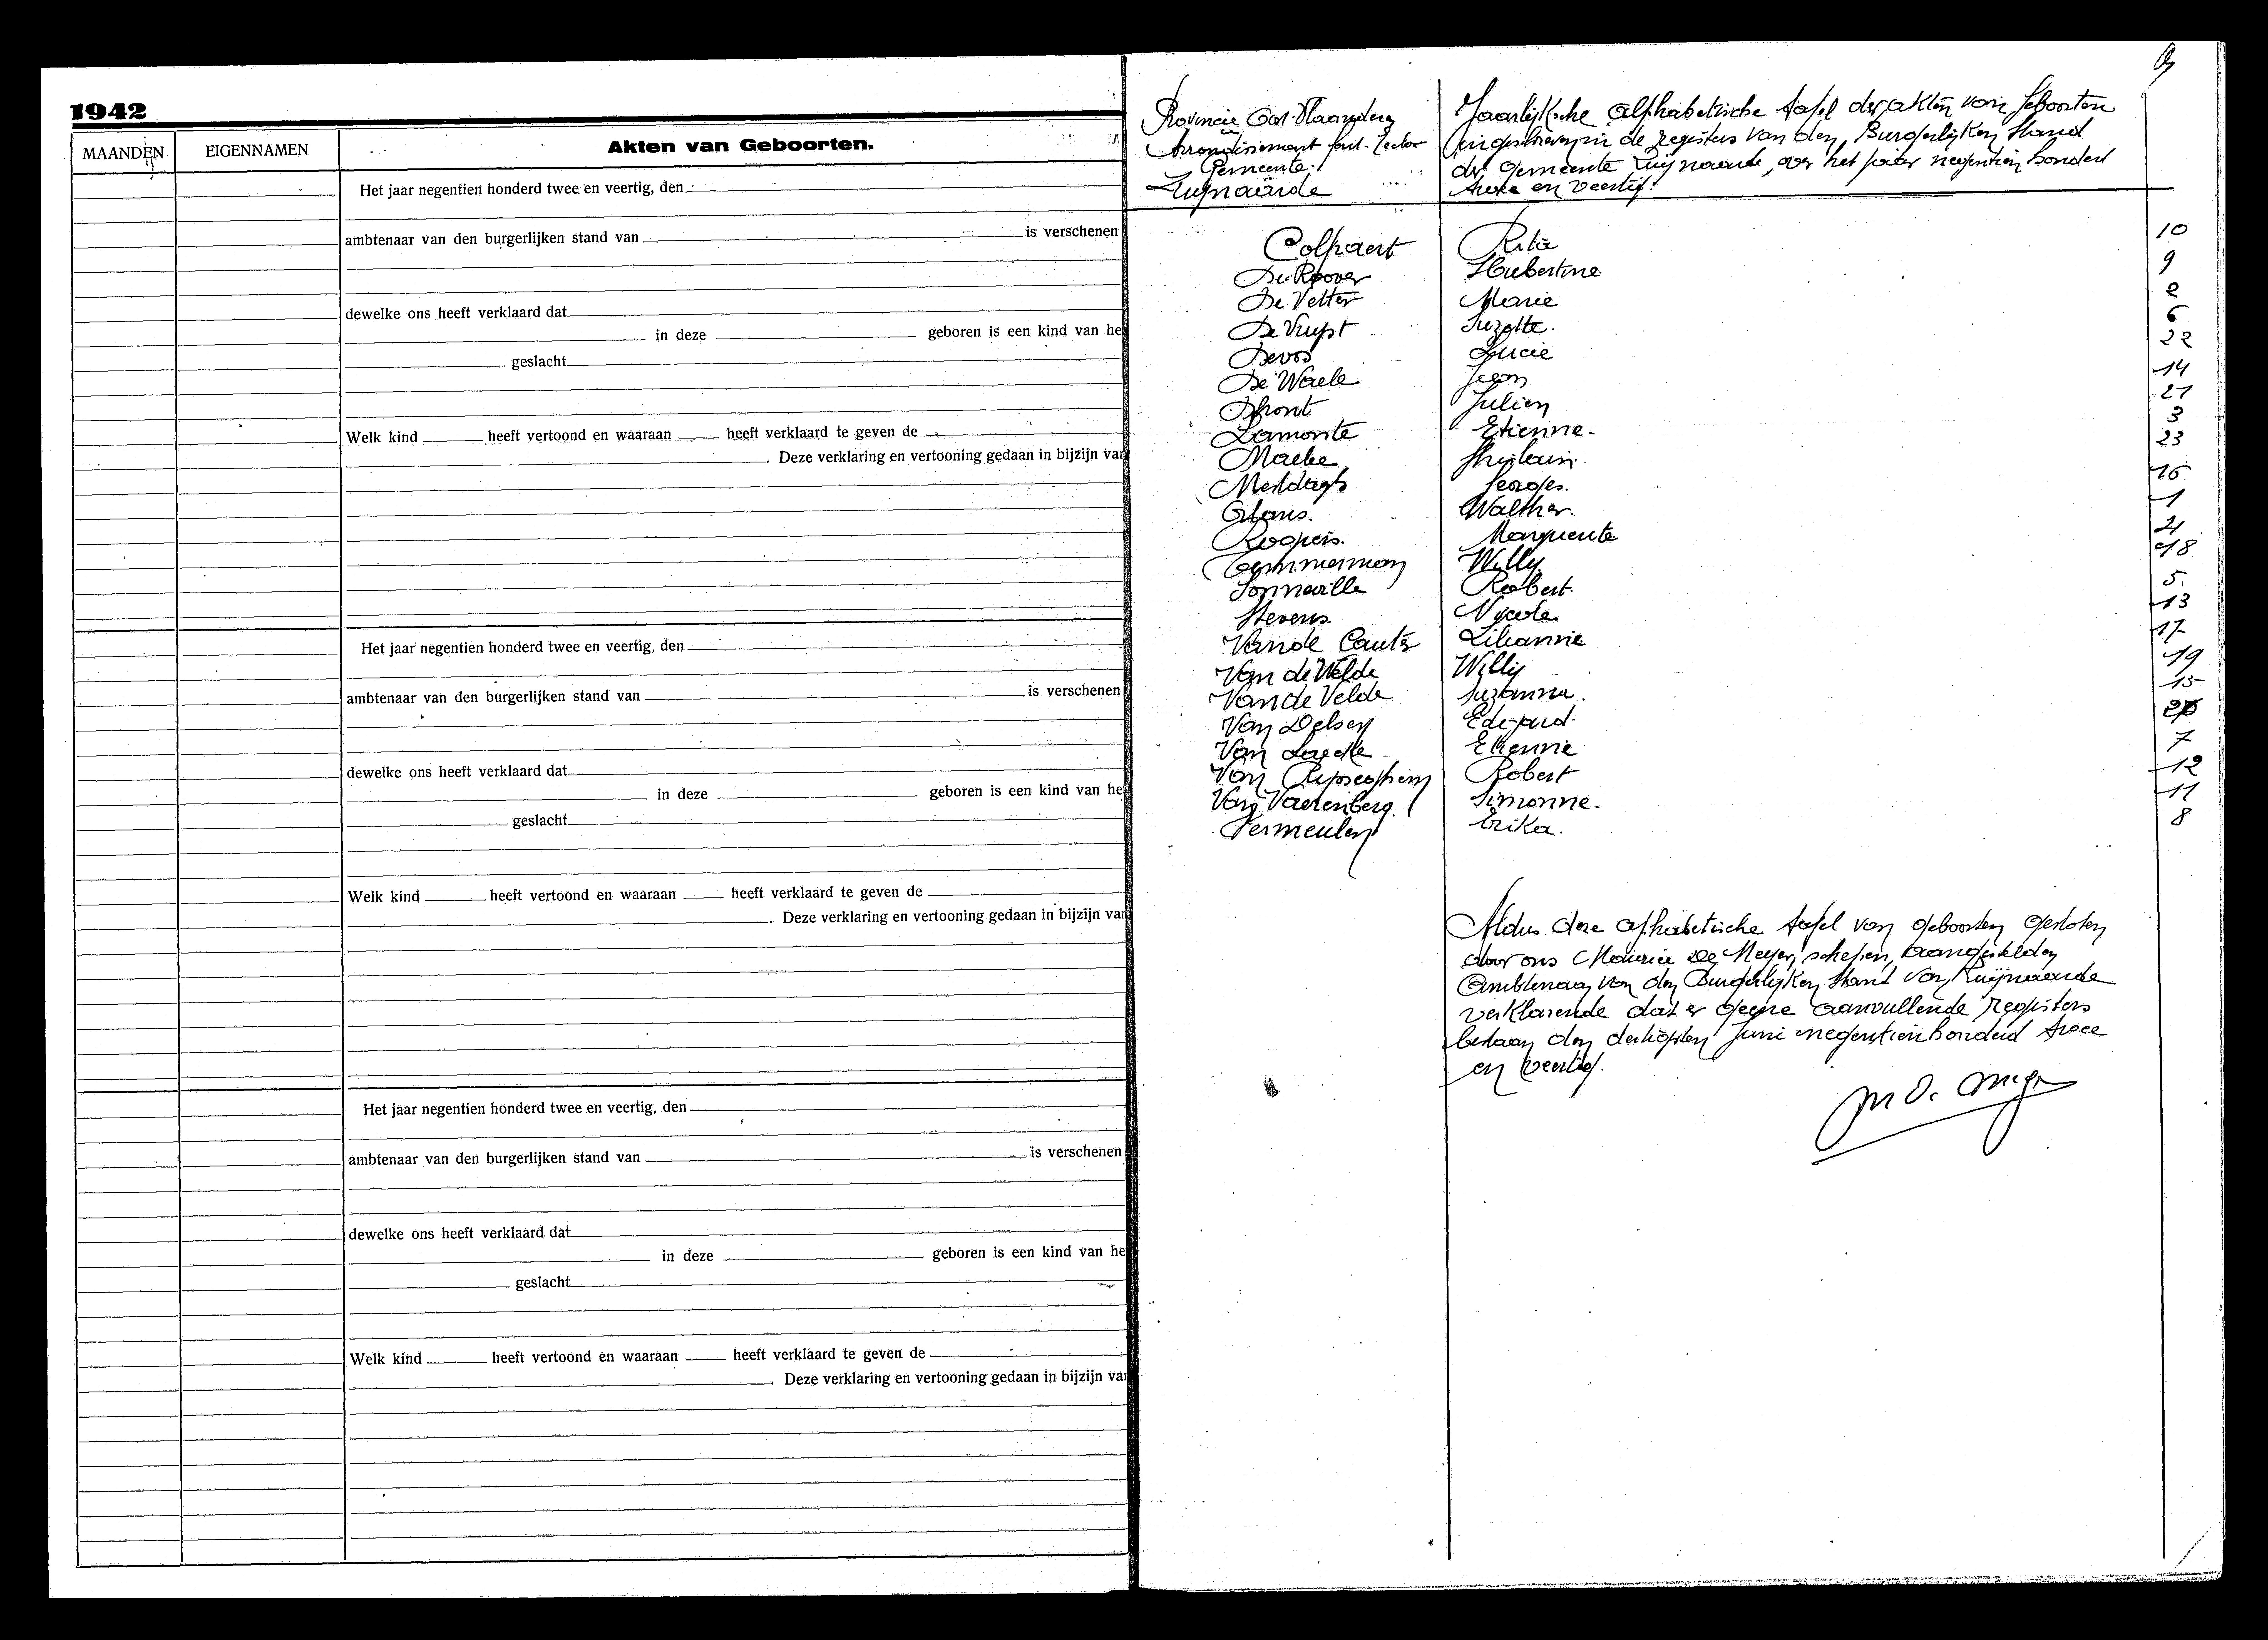 1942
MAANDEN
EIGENNAMEN
Akten van Geboorten.
Het jaar negentien honderd twee en veertig, den
ambtenaar van den burgerlijken stand van is verschenen
dewelke ons heeft verklaard dat
in deze geboren is een kind van he
geslacht
Welk kind heeft vertoond en waaraan heeft verklaard te geven de
. Deze verklaring en vertooning gedaan in bijzijn van
Het jaar negentien honderd twee en veertig, den
ambtenaar van den burgerlijken stand van is verschenen
dewelke ons heeft verklaard dat
in deze geboren is een kind van he
geslacht
Welk kind heeft vertoond en waaraan heeft verklaard te geven de
. Deze verklaring en vertooning gedaan in bijzijn van
Het jaar negentien honderd twee en veertig, den
ambtenaar van den burgerlijken stand van is verschenen
dewelke ons heeft verklaard dat
in deze geboren is een kind van he
geslacht
Welk kind heeft vertoond en waaraan heeft verklaard te geven de
. Deze verklaring en vertooning gedaan in bijzijn van
Provincie Oost-Vlaanderen
Arrondissement Gent-Eecloo
Gemeente
Zwijnaarde
Jaarlijksche alphabetische tafel der akten van Geboorten
ingeschreven in de registers van den Burgerlijken Stand
der gemeente Zwijnaarde, over het jaar negentien honderd
twee en veertig.
Colpaert Rita 10
De Roover Hubertine 9
De Vetter Marie 2
De Vuyst Suzette. 6
Devos Lucie 22
De Waele Jean 14
Dhont Julien 21
Lamonte Etienne. 3
Maebe Ghislain. 23
Meldagh Georges. 16
Walther. 1
Roopers. Marguerite
Temmerman Willy. 18
Sonneville Robert. 5.
Stevens Nicole 13
Vande Lilianne 17
Van de Velde Willy 19
Van de Velde Suzanna. 15
Van Edward.
Van Etienne 7
Van Robert 12
Van Vaerenberg. Simonne. 11
Vermeulen Erika. 8
Aldus deze alphabetische tafel van geboorten gesloten
door ons Maurice De Meyer, schepen, aangestelden
Ambtenaar van den Burgerlijken Stand van Zwijnaarde
verklarende dat er geene aanvullende registers
bestaan den dertigsten Juni negentien honderd twee
en veertig.